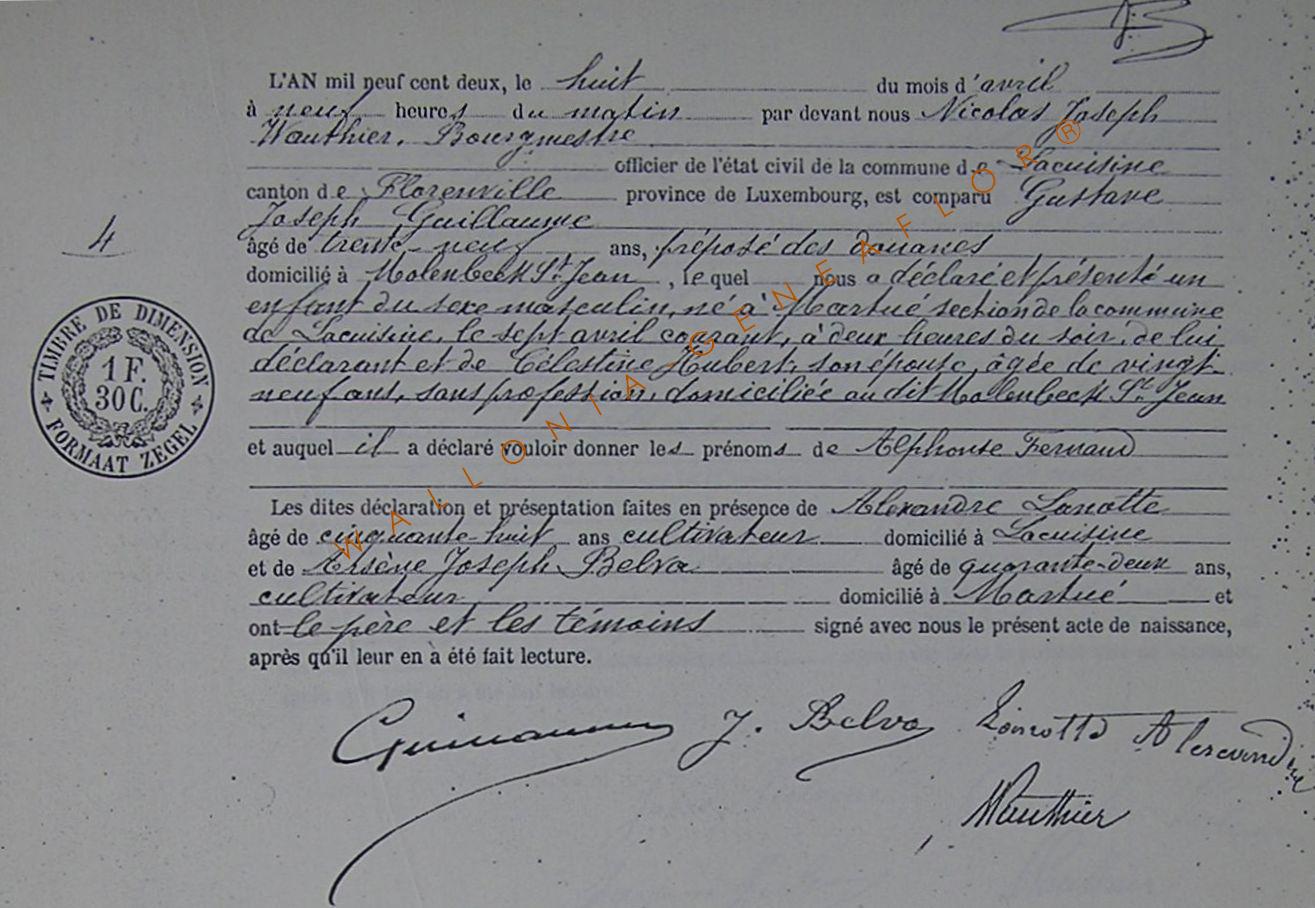 L'AN mil neuf cent deux, le huit du mois d'avril
à neuf heures du matin par devant nous Nicolas Joseph
Wauthier, Bourgmestre
officier de l'état civil de la commune de Lacuisine
canton de Florenville province de Luxembourg, est comparu Gustave
Joseph Guillaume
4
âgé de trente-neuf ans, préposé des douanes
domicilié à Molenbeek St Jean, lequel nous a déclaré et présenté un
enfant du sexe masculin, né à Martué section de la commune
de Lacuisine, le sept avril courant, à deux heures du soir, de lui
déclarant et de Célestine Hubert, son épouse, âgée de vingt
neuf ans, sans profession, domiciliée au dit Molenbeek St Jean
TIMBRE DE DIMENSION
1 F.
30 C.
FORMAAT ZEGEL
et auquel il a déclaré vouloir donner les prénoms de Alphonse Fernand
Les dites déclaration et présentation faites en présence de Alexandre Lonotte
âgé de cinquante-huit ans cultivateur domicilié à Lacuisine
et de Arsène Joseph Belva âgé de quarante-deux ans,
cultivateur domicilié à Martué et
ont le père et les témoins signé avec nous le présent acte de naissance,
après qu'il leur en à été fait lecture.
Guillaume J. Belva Lonotte Alexandre
Wauthier
WALLONIA GENEAFLOR®